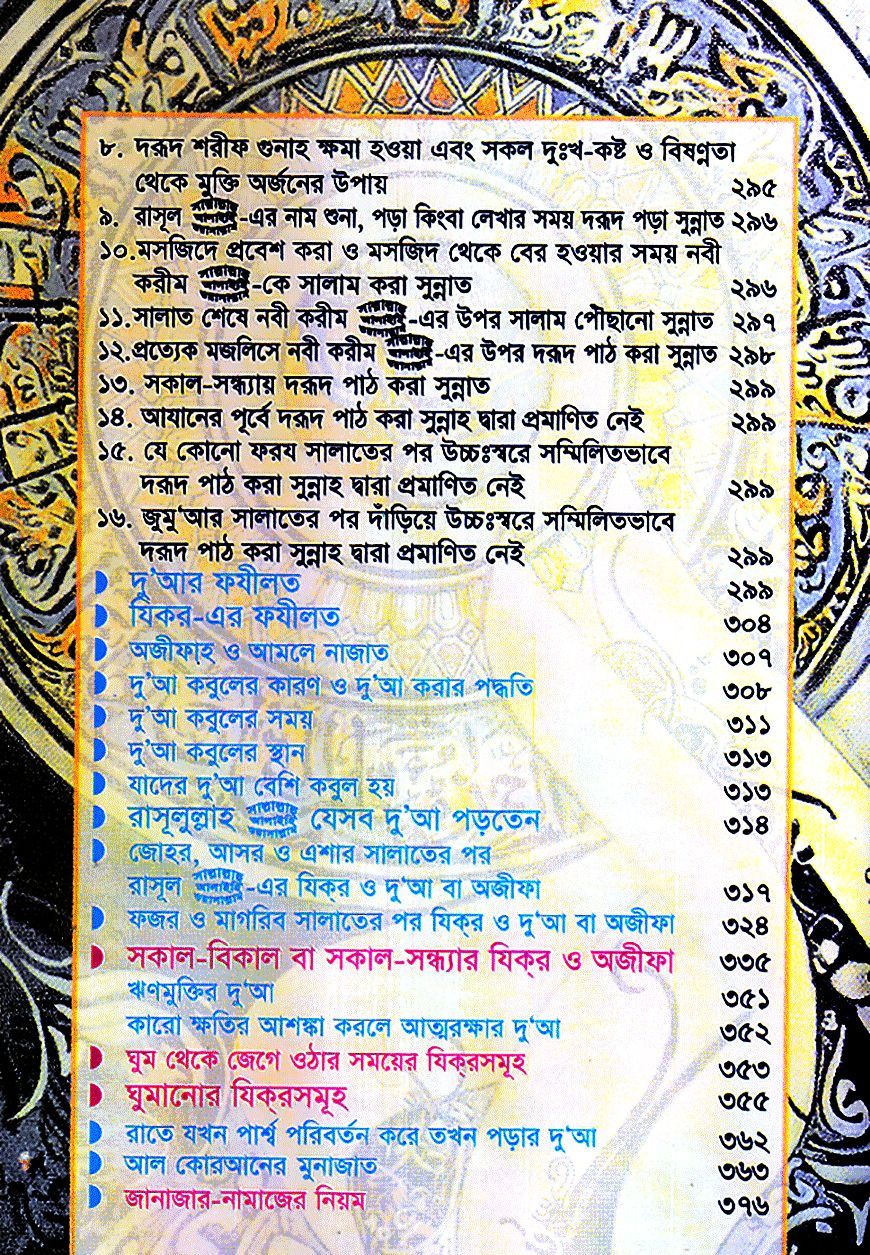 ৮. দরূদ শরীফ গুনাহ ক্ষমা হওয়া এবং সকল দুঃখ-কষ্ট ও বিষণ্ণতা
থেকে মুক্তি অর্জনের উপায় ২৯৫
৯. রাসূল সাল্লাল্লাহু আলাইহি ওয়াসাল্লাম-এর নাম শুনা, পড়া কিংবা লেখার সময় দরূদ পড়া সুন্নাত ২৯৬
১০.মসজিদে প্রবেশ করা ও মসজিদ থেকে বের হওয়ার সময় নবী
করীম সাল্লাল্লাহু আলাইহি ওয়াসাল্লাম-কে সালাম করা সুন্নাত ২৯৬
১১.সালাত শেষে নবী করীম সাল্লাল্লাহু আলাইহি ওয়াসাল্লাম-এর উপর সালাম পৌঁছানো সুন্নাত ২৯৭
১২.প্রত্যেক মজলিসে নবী করীম সাল্লাল্লাহু আলাইহি ওয়াসাল্লাম-এর উপর দরূদ পাঠ করা সুন্নাত ২৯৮
১৩. সকাল-সন্ধ্যায় দরূদ পাঠ করা সুন্নাত ২৯৯
১৪. আযানের পূর্বে দরূদ পাঠ করা সুন্নাহ দ্বারা প্রমাণিত নেই ২৯৯
১৫. যে কোনো ফরয সালাতের পর উচ্চঃস্বরে সম্মিলিতভাবে
দরূদ পাঠ করা সুন্নাহ দ্বারা প্রমাণিত নেই ২৯৯
১৬. জুমু‘আর সালাতের পর দাঁড়িয়ে উচ্চঃস্বরে সম্মিলিতভাবে
দরূদ পাঠ করা সুন্নাহ দ্বারা প্রমাণিত নেই ২৯৯
দু‘আর ফযীলত ২৯৯
যিকর-এর ফযীলত ৩০৪
অজীফাহ্ ও আমলে নাজাত ৩০৭
দু‘আ কবুলের কারণ ও দু‘আ করার পদ্ধতি ৩০৮
দু‘আ কবুলের সময় ৩১১
দু‘আ কবুলের স্থান ৩১৩
যাদের দু‘আ বেশি কবুল হয় ৩১৩
রাসূলুল্লাহ সাল্লাল্লাহু আলাইহি ওয়াসাল্লাম যেসব দু‘আ পড়তেন ৩১৪
জোহর, আসর ও এশার সালাতের পর
রাসূল সাল্লাল্লাহু আলাইহি ওয়াসাল্লাম-এর যিক্‌র ও দু‘আ বা অজীফা ৩১৭
ফজর ও মাগরিব সালাতের পর যিক্‌র ও দু‘আ বা অজীফা ৩২৪
সকাল-বিকাল বা সকাল-সন্ধ্যার যিক্‌র ও অজীফা ৩৩৫
ঋণমুক্তির দু‘আ ৩৫১
কারো ক্ষতির আশঙ্কা করলে আত্মরক্ষার দু‘আ ৩৫২
ঘুম থেকে জেগে ওঠার সময়ের যিক্‌রসমূহ ৩৫৩
ঘুমানোর যিক্‌রসমূহ ৩৫৫
রাতে যখন পার্শ্ব পরিবর্তন করে তখন পড়ার দু‘আ ৩৬২
আল কোরআনের মুনাজাত ৩৬৩
জানাজার-নামাজের নিয়ম ৩৭৬